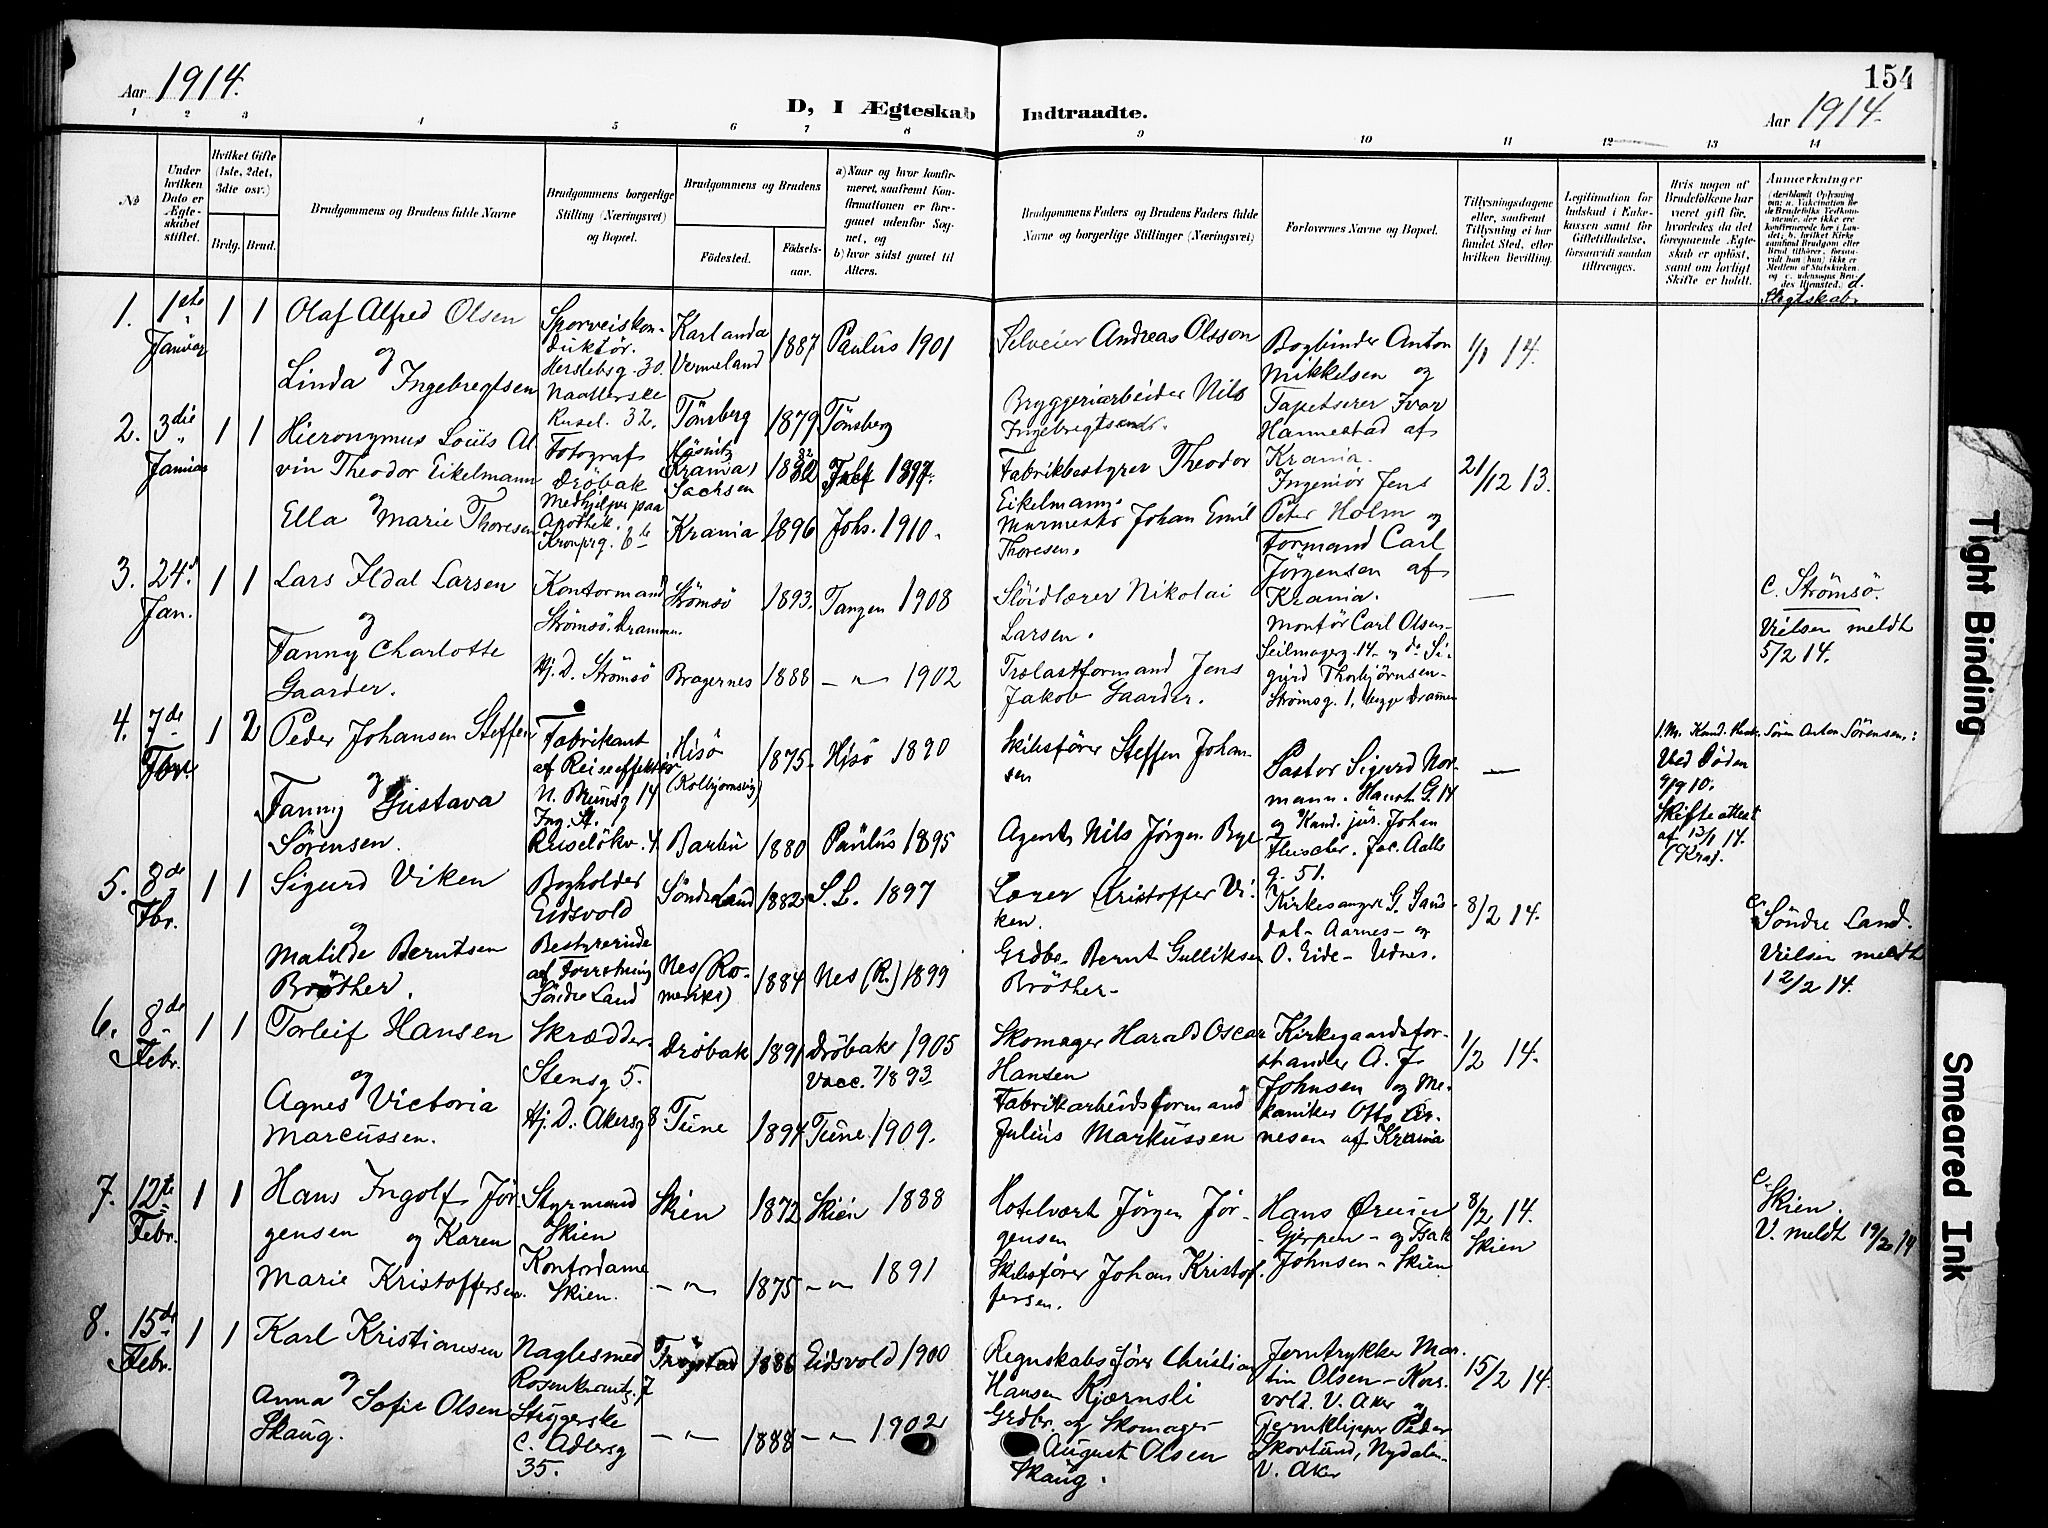 154
Aar 1914.
D, I Ægteskab Indtraadte.
Aar 1914.
1 2 3 4 5 6 7 8 9 10 11 12 13 14
No
Under hvilken Dato er Ægteskabet stiftet.
Hvilket Gifte (1ste, 2det, 3die osv.)
Brdg. Brud.
Brudgommens og Brudens fulde Navne
Brudgommens borgerlige Stilling (Næringsvei) og Bopæl.
Brudgommens og Brudens
Fødested. Fødselsaar.
a) Naar og hvor konfirmeret, saafremt Konfirmationen er foregaaet udenfor Sognet, og
b) hvor sidst gaaet til Alters.
Brudgommens Faders og Brudens Faders fulde Navne og borgerlige Stillinger (Næringsvei)
Forlovernes Navne og Bopæl.
Tillysningsdagene eller, saafremt Tillysning ei har fundet Sted, efter hvilken Bevilling.
Legitimation for Indskud i Enkekassen samt for Giftetilladelse, forsaavidt saadan tiltrænges.
Hvis nogen af Brudefolkene har været gift før, hvorledes da det foregaaende Ægteskab er opløst, samt om lovligt Skifte er holdt.
Anmerkninger
d. Slegtskab.
1. 1ste Januar 1 1
Olaf Alfred Olsen
og
Linda Ingebregtsen
Sporveiskonduktør.
Herslebsg. 30.
Naatlerske
Rusel. 32.
Karlanda Vermeland 1887 Paulus 1901
Tönsberg 1879 Tönsberg
Selveier Andreas Olsson
Bryggeriarbeider Nils Ingebregtsen
Bogbinder Anton Mikkelsen og Tapetserer Ivar Hannestad af Krania.
1/1 14.
2. 3die Januar 1 1
Hieronymus Louis Alvin Theodor Eikelmann
og
Ella Marie Thoresen
Fotograf
Dröbak
Medhjelper paa Apothek.
Kronprg. 6te
Sachsen 1882
Krania 1896 Johs. 1910.
Fabrikbestyrer Theodor Eikelmann.
Murmester Johan Emil Thoresen.
Ingeniør Jens Peter Holm og Formand Carl Jörgensen af Krania.
21/12 13.
3. 24d. Jan. 1 1
Lars Ildal Larsen
og
Fanny Charlotte Gaarder.
Kontormand
Strömsö. Drammen.
Hj. D. Strömsö
Strömsö 1893. Tangen 1908
Bragernes 1888 — " — 1902
Slöidlærer Nikolai Larsen.
Trelastformand Jens Jakob Gaarder.
Montör Carl Olsen - Seilmagerg. 14 - og do Sigurd Thorbjörnsen - Strömsg. 1, begge Drammen
—
C. Strömsö.
Vielsen meldt 5/2 14.
4. 7de Febr. 1 2
Peder Johansen Steffen
og
Fanny Gustava Sörensen.
Fabrikant af Reiseeffekter
N. Munsg 14
Ing. St.
Ruselökv. 4
Hisö (Kolbjørnsvig) 1875 Hisö 1890
Barbu 1880 Paulus 1895
Skibsförer Steffen Johansen
Agent Nils Jörgen Bye
Pastor Sigurd Normann. Hansts G. 14 og Kand. jur. Johan Heuster. Jac. Aalls g. 51.
—
Sören Anton Sörensen:
Ved Döden 9/9 10.
Skifteattest af 13/1 14.
(Kra).
5. 8de Fbr. 1 1
Sigurd Viken
og
Matilde Berntsen Bröther.
Bogholder
Eidsvold
Bestyrerinde af Forretning
Söndre Land
Söndre Land 1882 S. L. 1897
Nes (Romerike) 1884 Nes (R.) 1899
Lærer Kristoffer Viken.
Grdbr. Bernt Gulliksen Bröther.
Kirkesanger G. Gansdal - Aarnes - og O. Eide - Udnes.
8/2 14.
C. Söndre Land.
Vielsen meldt 12/2 14.
6. 8de Febr. 1 1
Torleif Hansen
og
Agnes Victoria Marcussen.
Skrædder
Stensg 5.
Hj. D. Akersg 8
Dröbak 1891 Dröbak 1905
Vacc. 7/8 93
Tune 1894 Tune 1909.
Skomager Harald Oscar Hansen
Fabrikarbeidsformand Julius Markussen
Kirkegaardsforstander A. J. Johnsen og Mekaniker Otto Arnesen af Krania
1/2 14.
7. 12te Febr. 1 1
Hans Ingolf Jörgensen og Karen Marie Kristoffersen.
Styrmand
Skien
Kontordame
Skien.
Skien 1872 Skien 1888
— " — 1875 — " — 1891
Hotelvært Jörgen Jörgensen
Skibsförer Johan Kristoffersen.
Hans Ørum - Gjerpen - og Isak Johnsen - Skien
8/2 14.
Skien
C. Skien.
V. meldt 19/2 14
8. 15de Febr. 1 1
Karl Kristiansen
og
Anna Sofie Olsen Skaug.
Naglesmed
Rosenkrantz. 7
Stryggerske
C. Adlersg 35.
Trögstad 1886 Eidsvold 1900
— " — 1888 — " — 1902
Regnskabsförer Christian Hansen Kjærnsli
Grdbr. og Skomager August Olsen Skaug.
Jerntrykker Martin Olsen - Korsvold. V. Aker og Jernklipper Peder Skovlund, Nydalen. V. Aker
15/2 14.
Tight Binding
Smeared Ink